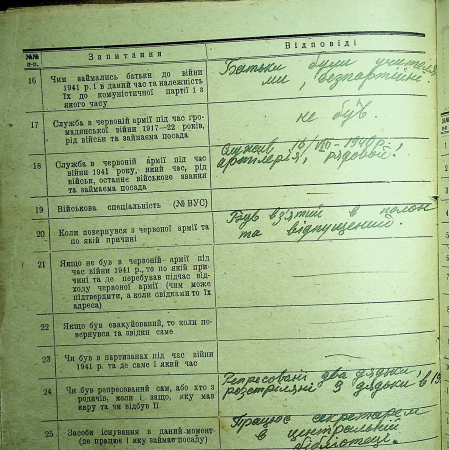 №№ п-п.
Запитання
Відповіді
16
Чим займались батьки до війни
1941 р. і в даний час та належність
їх до комуністичної партії і з
якого часу
Батьки були учителя
ми, безпартійні.
17
Служба в червоній армії під час гро-
мадянської війни 1917—22 років,
рід військ та займаєма посада
не був.
18
Служба в червоній армії під час
війни 1941 року, який час, рід
військ, останнє військове звання
та займаєма посада
Служив 1940 р.
артилерія, рядовой!
19
Військова спеціяльність (№ ВУС)
20
Коли повернувся з червоної армії та
по якій причині
Був взятий в полон
та відпущений.
21
Якщо не був в червоній армії під
час війни 1941 р., то по якій при-
чині та де перебував підчас від-
ходу червоної армії (чим може
підтвердити, а коли свідками то їх
адреса)
22
Якщо був евакуйований, то коли по-
вернувся та звідки саме
23
Чи був в партизанах під час війни
1941 р. та де саме і який час
24
Чи був репресований сам, або хто з
родичів, коли і защо, яку мав
кару та чи відбув її
Репресовані два дядьки,
розстріляні 3 дядьки в 19
25
Засоби існування в даний момент
(де працює і яку займає посаду)
Працює секретарем
в центральній
бібліотеці.